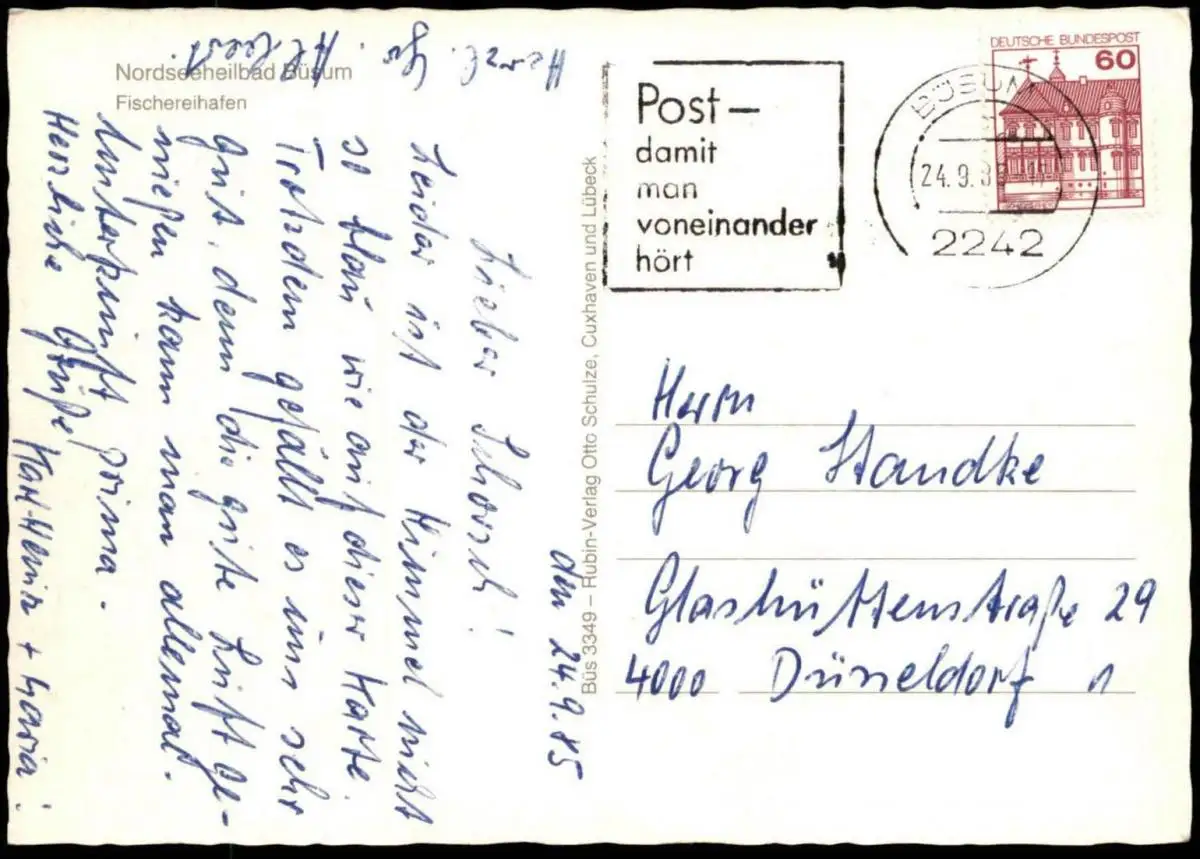 Nordseeheilbad Büsum
Fischereihafen
den 24.9.85
Lieber Schorsch!
Leider ist der Himmel nicht
so blau wie auf dieser Karte.
Trotzdem gefällt es uns sehr
gut, denn die gute Luft ge-
nießen kann man allemal.
Unterkunft prima.
Herzliche Grüße
Karl-Heinz + Maria!
Herzl. Gr.
Büs 3349 – Rubin-Verlag Otto Schulze, Cuxhaven und Lübeck
Post –
damit
man
voneinander
hört
DEUTSCHE BUNDESPOST
60
BÜSUM
24.9.85
2242
Herrn
Georg Standke
Glashüttenstraße 29
4000 Düsseldorf 1